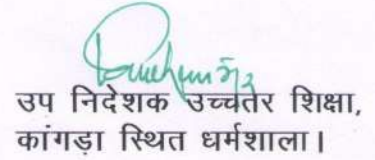 उप निदेशक उच्चतर शिक्षा,
कांगड़ा स्थित धर्मशाला।